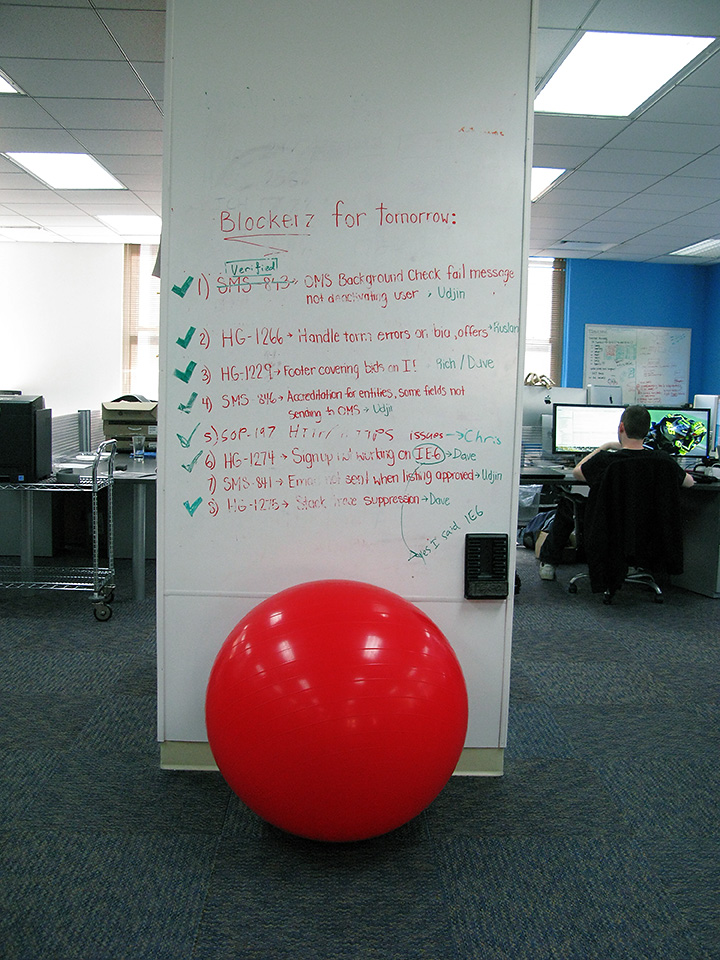 Blockerz for tomorrow:
Verified
1) SMS-843 → OMS Background Check fail message
not deactivating user → Udjin
2) HG-1266 → Handle torm errors on bid, offers → Ruslan
3) HG-1229 → Footer covering bids on I! Rich / Dave
4) SMS-846 → Accreditation for entities, some fields not
sending to OMS → Udjin
5) SOP-197 issues → Chris
6) HG-1274 → Signup not working on IE6 → Dave
7) SMS-841 → Email not sent when listing approved → Udjin
8) HG-1275 → Stack trace suppression → Dave
yes I said IE6